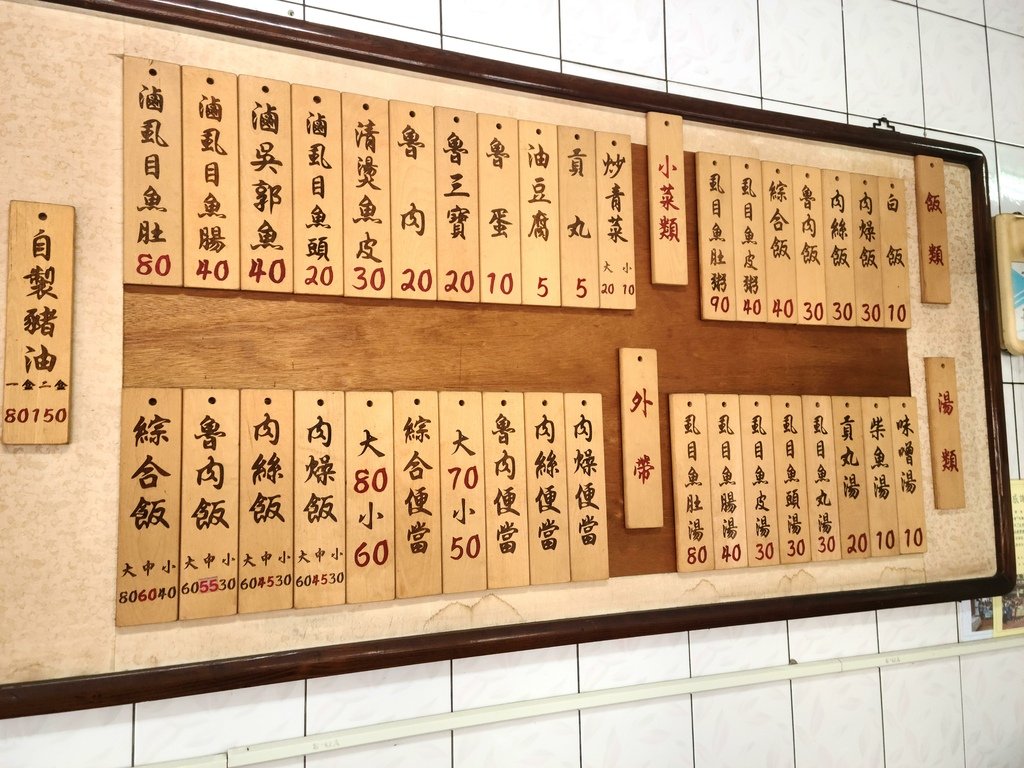 飯類
白飯 10
肉燥飯 30
肉絲飯 30
魯肉飯 30
綜合飯 40
虱目魚皮粥 40
虱目魚肚粥 90
小菜類
炒青菜 大 小 20 10
貢丸 5
油豆腐 5
魯蛋 10
魯三寶 20
魯肉 20
清燙魚皮 30
滷虱目魚頭 20
滷吳郭魚 40
滷虱目魚腸 40
滷虱目魚肚 80
湯類
味噌湯 10
柴魚湯 10
貢丸湯 20
虱目魚丸湯 30
虱目魚頭湯 30
虱目魚皮湯 30
虱目魚腸湯 40
虱目魚肚湯 80
外帶
肉燥便當
肉絲便當
魯肉便當
大70小50
綜合便當
大80小60
肉燥飯 大中小 60 45 30
肉絲飯 大中小 60 45 30
魯肉飯 大中小 60 55 30
綜合飯 大中小 80 60 40
自製豬油
80 150